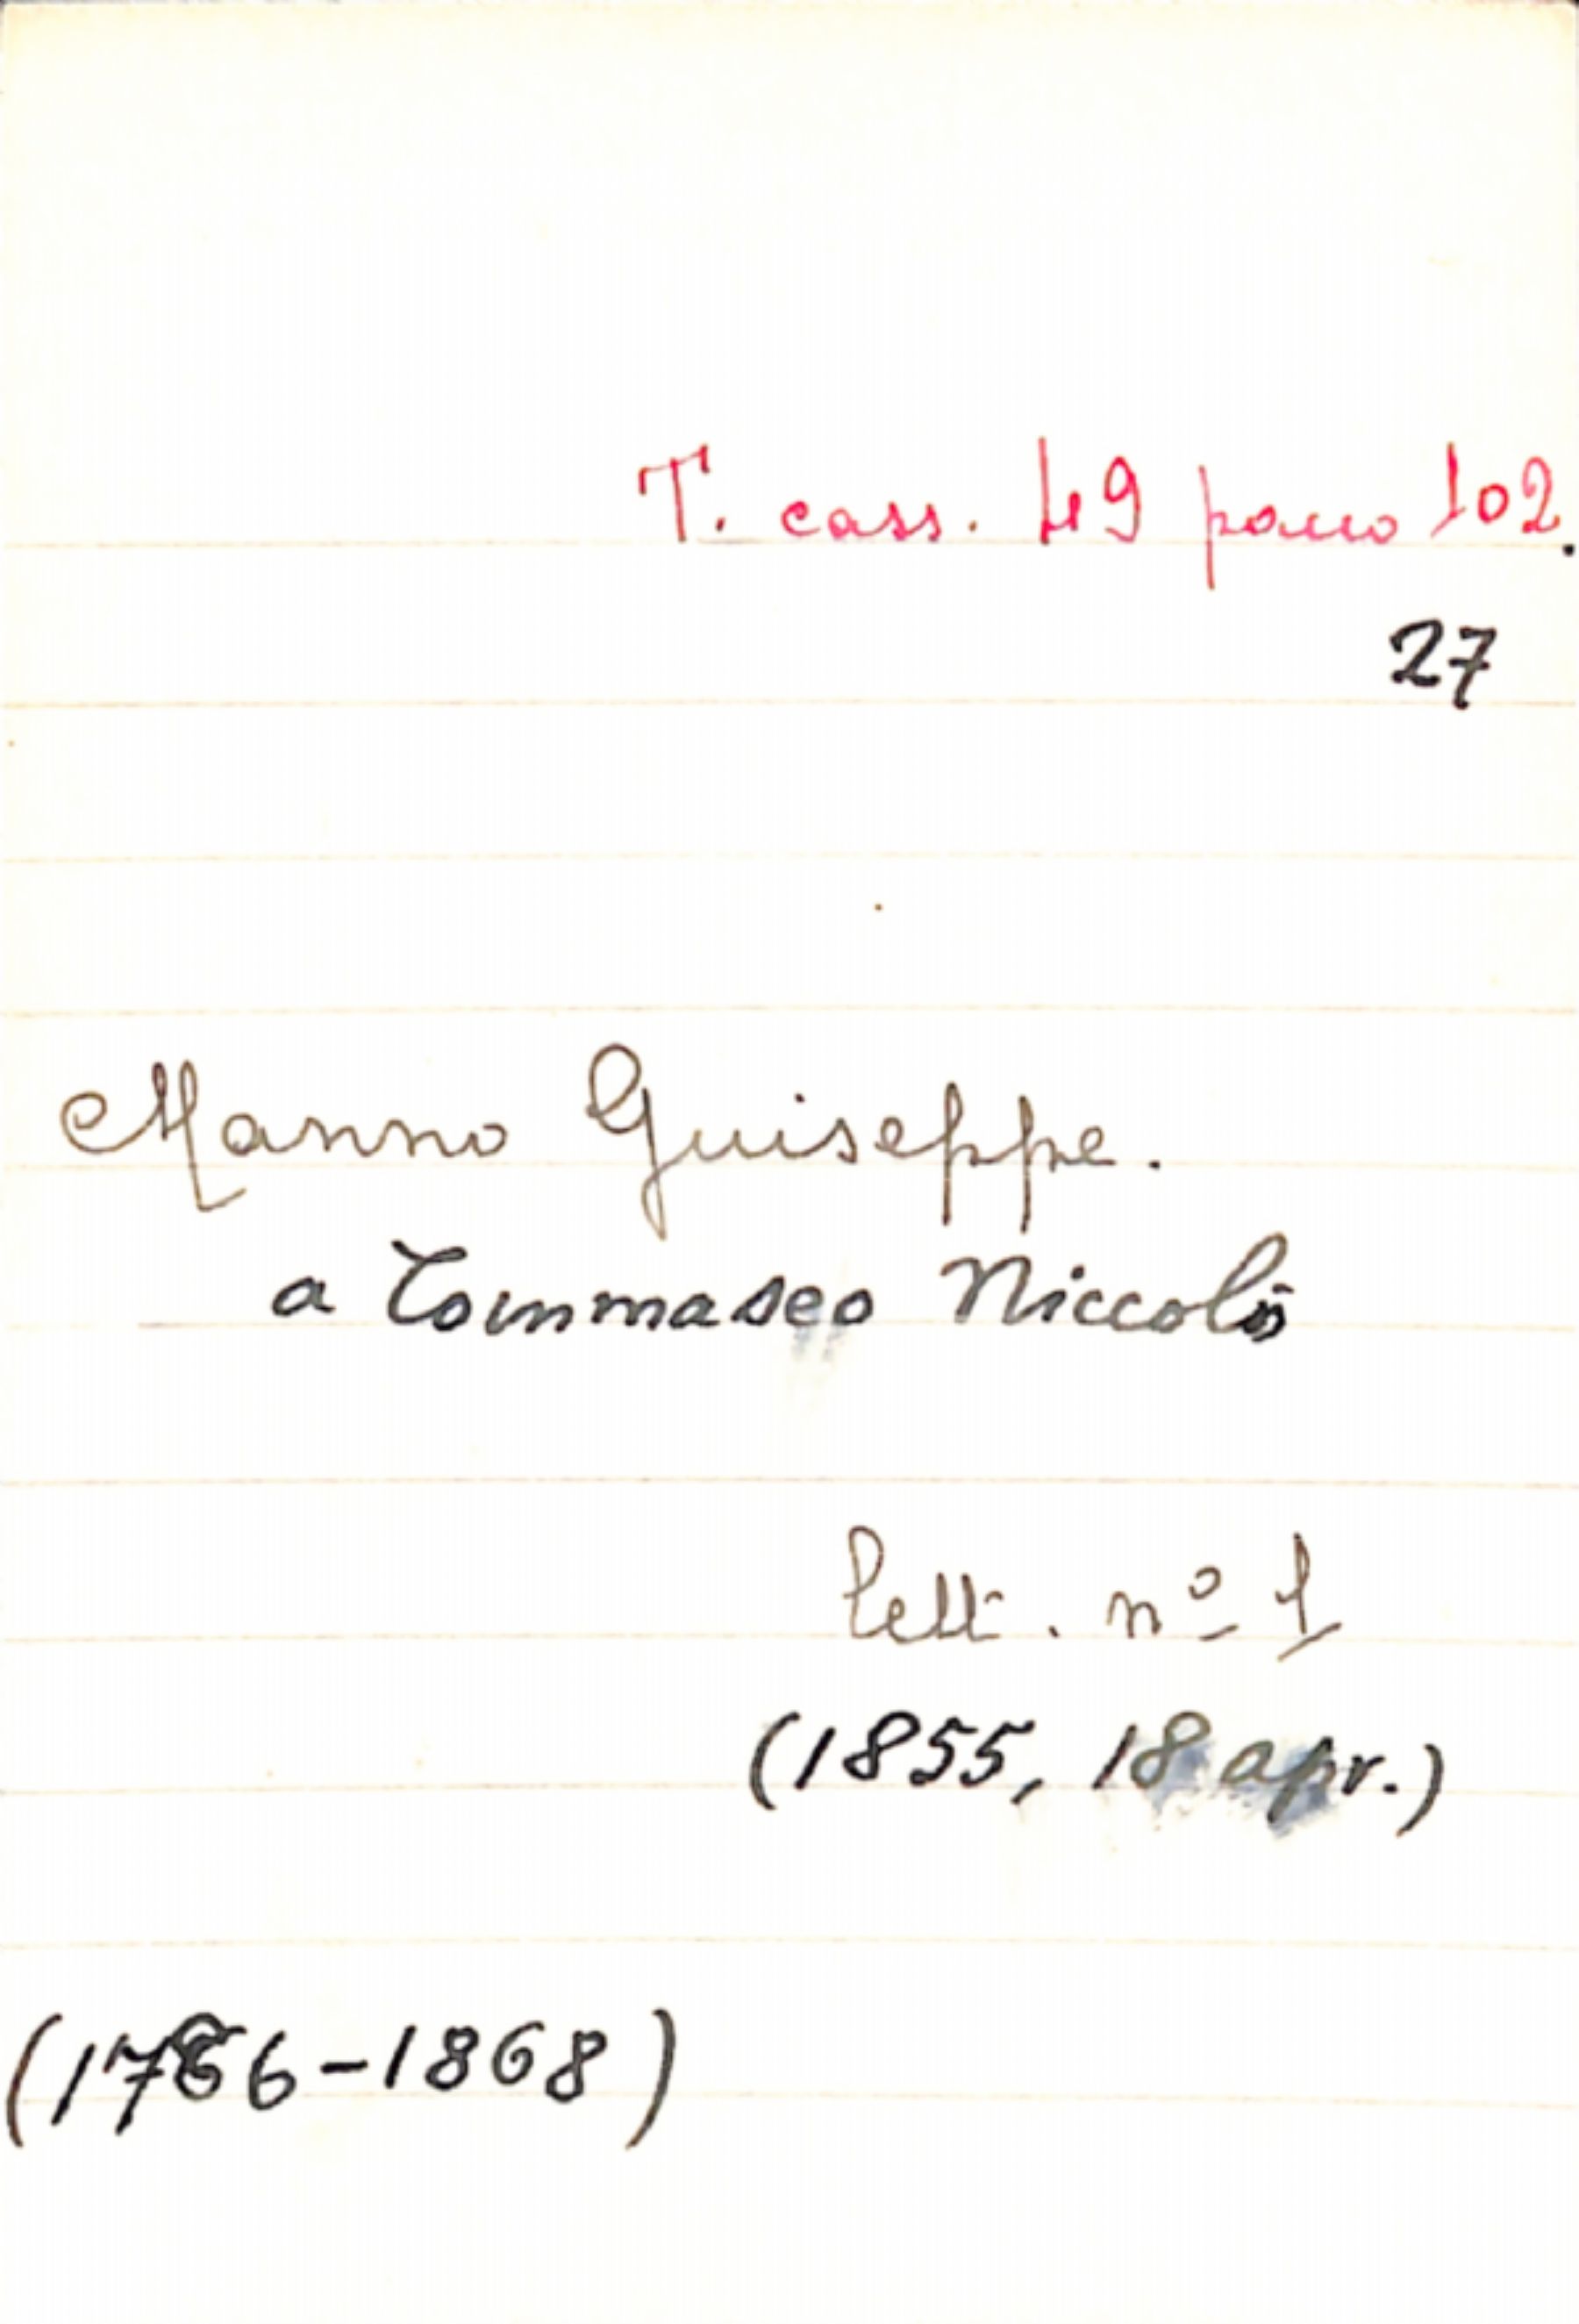 T. cass. 49 pacco 102.
27
Manno Guiseppe.
a Tommaseo Niccolò
lett. nº 1
(1855, 18 apr.)
(1786-1868)